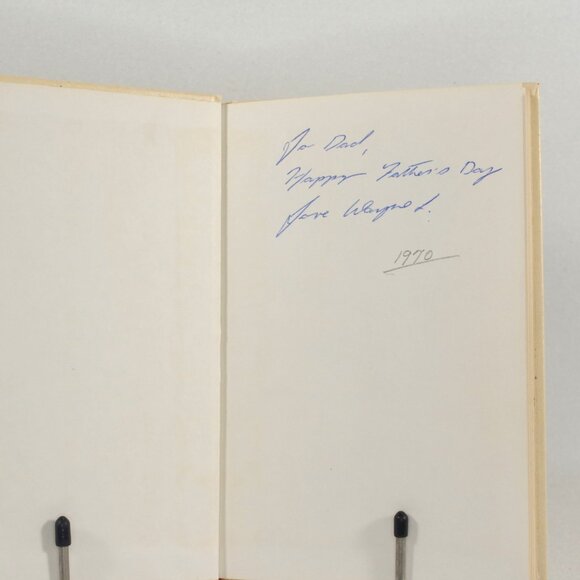 To Dad,
Happy Father's Day
Love Wayne L.
1970